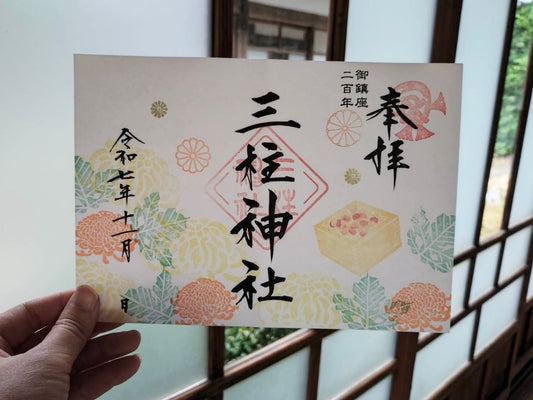 奉拝
御鎮座
二百年
三柱神社
令和七年十一月
日